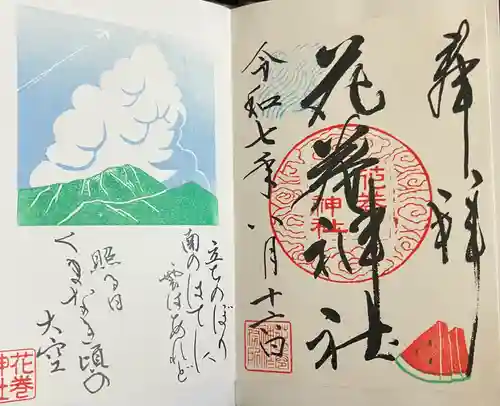 奉拝
花巻神社
令和七年八月十六日
花巻
神社
立ちのぼり
南のはてに
雲はあれど
照る日
くまなき頃の
大空
花巻
神社